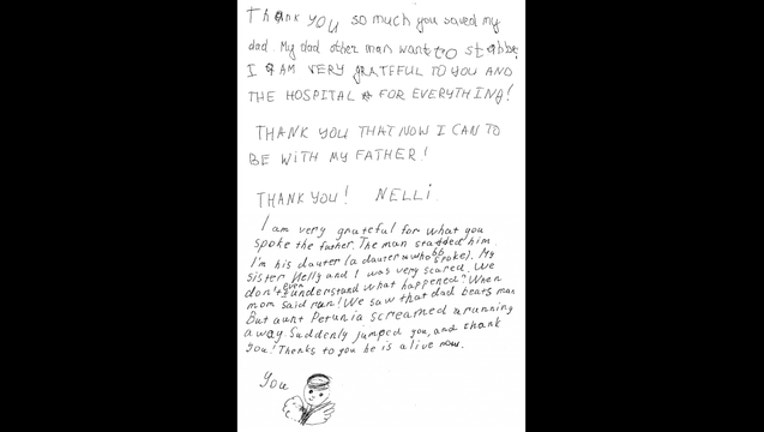 Thank you so much you saved my
dad. My dad other man want to stabbt.
I AM VERY GRATEFUL TO YOU AND
THE HOSPITAL FOR EVERYTHING!
THANK YOU THAT NOW I CAN TO
BE WITH MY FATHER!
THANK YOU! NELLI.
I am very grateful for what you
spoke the father. The man stabbed him.
I'm his dauter (a dauter who spoke). My
sister Nelly and I was very scared. We
don't even understand what happened? When
mom said run! We saw that dad beats man
But aunt Petunia screamed running
away. Suddenly jumped you, and thank
you! Thenks to you he is alive now.
You